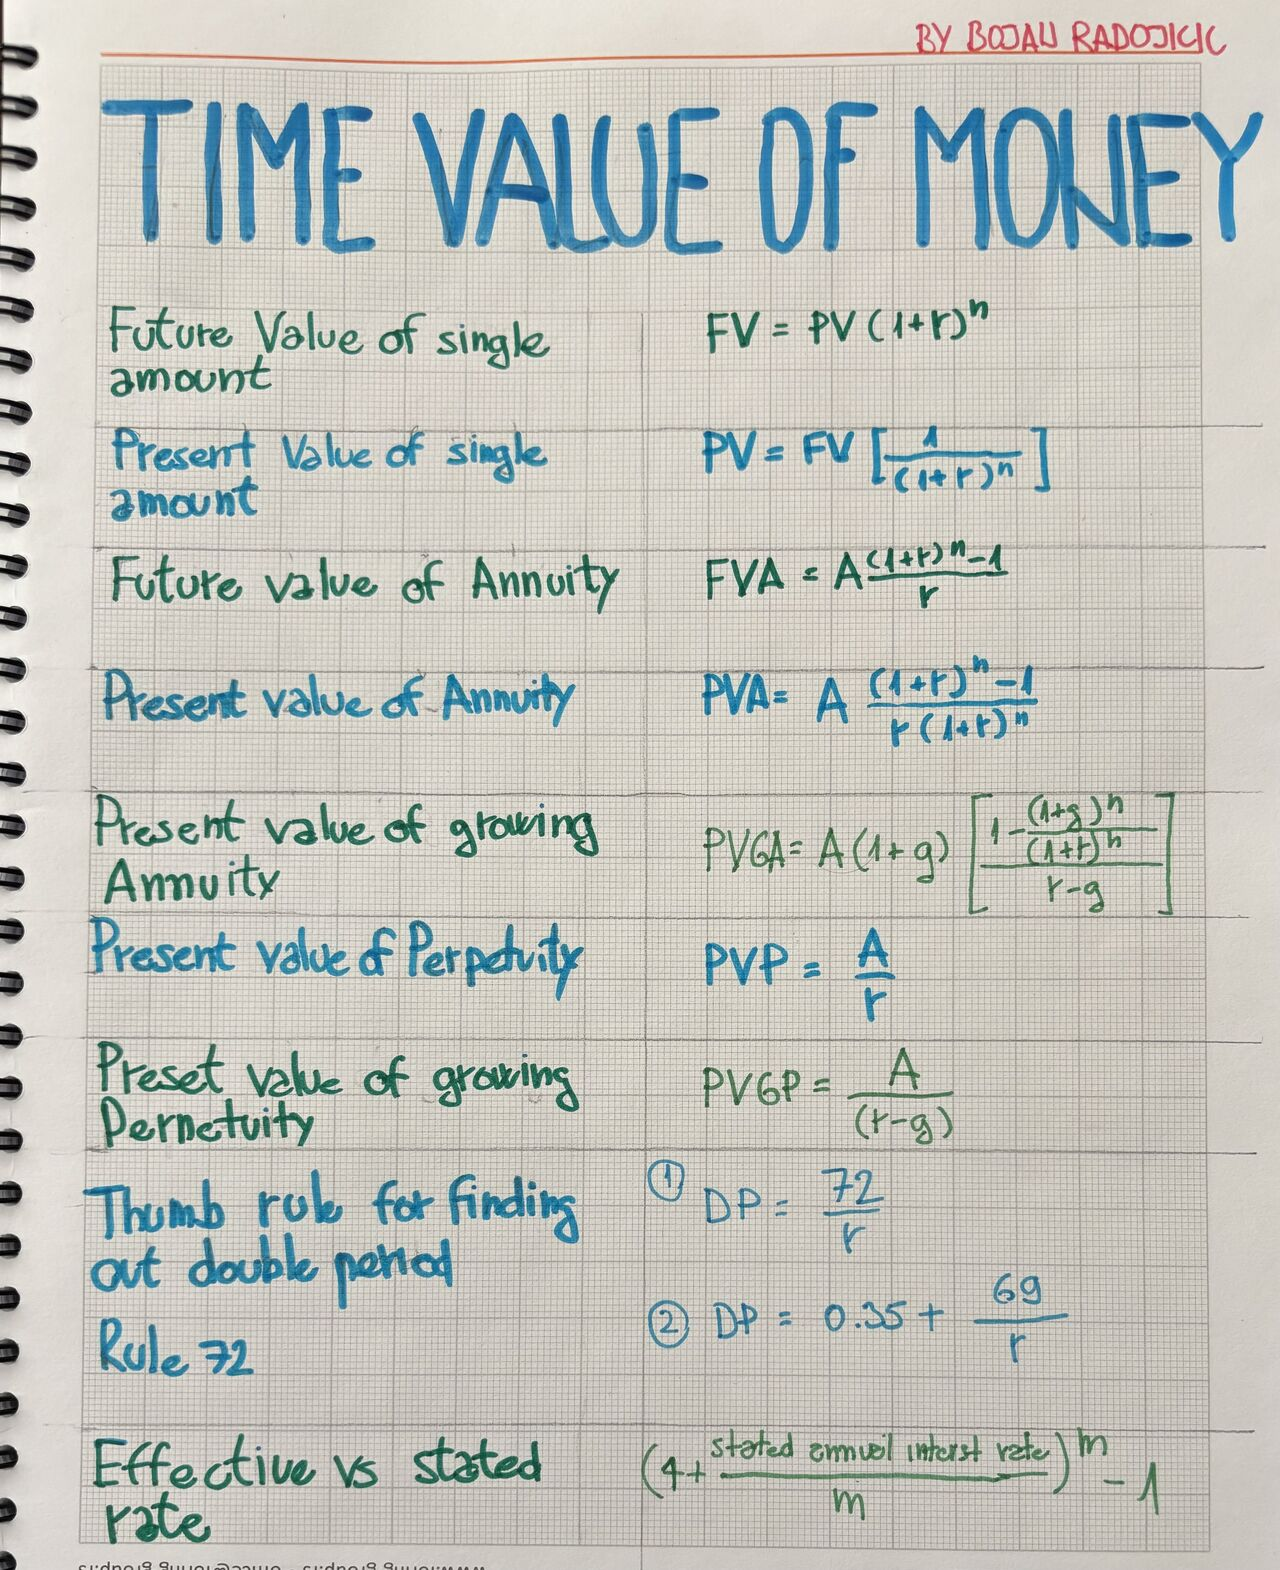 BY BOJAN RADOJICIC
TIME VALUE OF MONEY
Future Value of single
amount
FV = PV (1+r)^n
Present Value of single
amount
PV = FV [1/(1+r)^n]
Future value of Annuity
FVA = A ((1+r)^n - 1)/r
Present value of Annuity
PVA = A ((1+r)^n - 1)/(r(1+r)^n)
Present value of growing
Annuity
PVGA = A(1+g) [(1 - (1+g)^n/(1+r)^n)/(r-g)]
Present value of Perpetuity
PVP = A/r
Preset value of growing
Pernetuity
PVGP = A/(r-g)
Thumb rule for finding
out double period
Rule 72
① DP = 72/r
② DP = 0.35 + 69/r
Effective vs stated
rate
(1 + stated annual interst rate/m)^m - 1